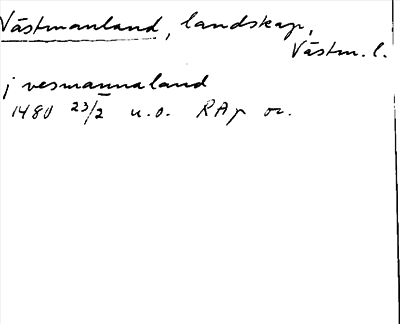 Västmanland, landskap,
Västm. l.
j vesmannaland
1480 23/2 u.o. RAp or.